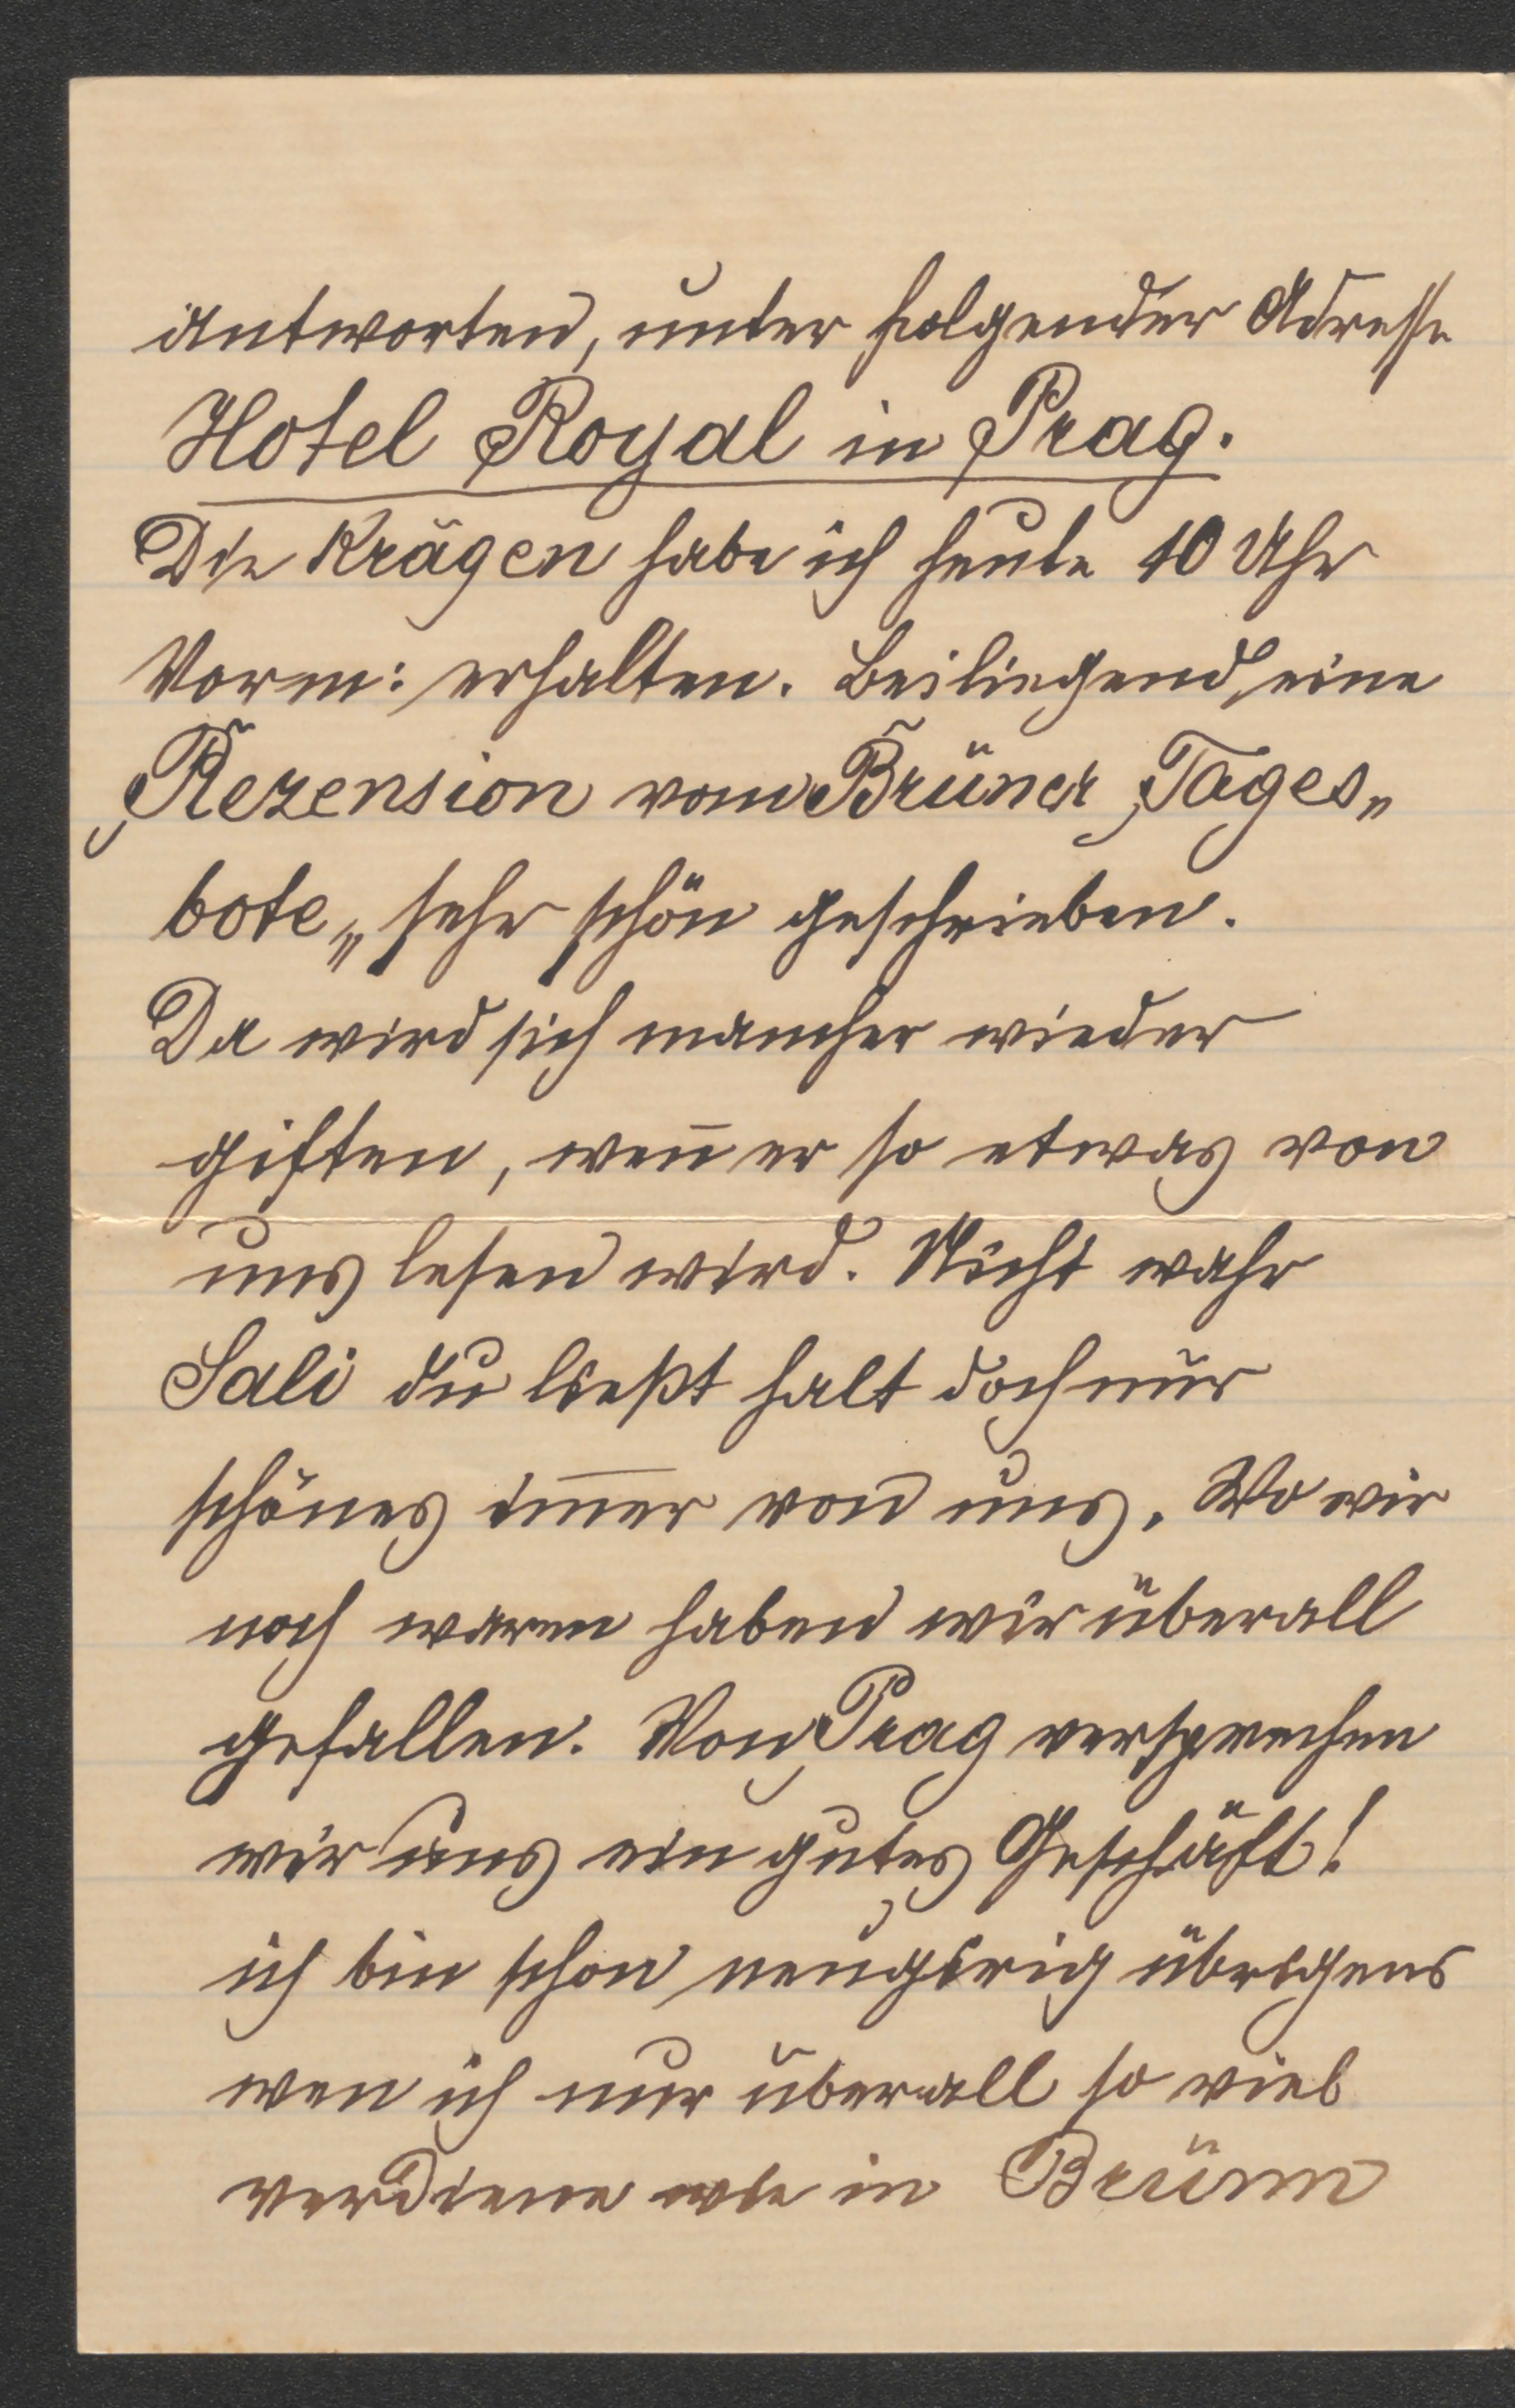 antworten, unter folgender Adresse
Hotel Royal in Prag.
Die Krägen habe ich heute 10 Uhr
Vorm: erhalten. Beiliegend eine
Rezension vom Brüner „Tages„
bote„ sehr schön geschrieben.
Da wird sich mancher wieder
giften, wen̄ er so etwas von
uns lesen wird. Nicht wahr
Sali du ließt halt doch nur
schönes im̄er von uns. Wo wir
noch waren haben wir überall
gefallen. Von Prag versprechen
wir uns ein gutes Geschäft!
ich bin schon neugirig übrigens
wen ich nur überall so viel
verdiene wie in Brünn